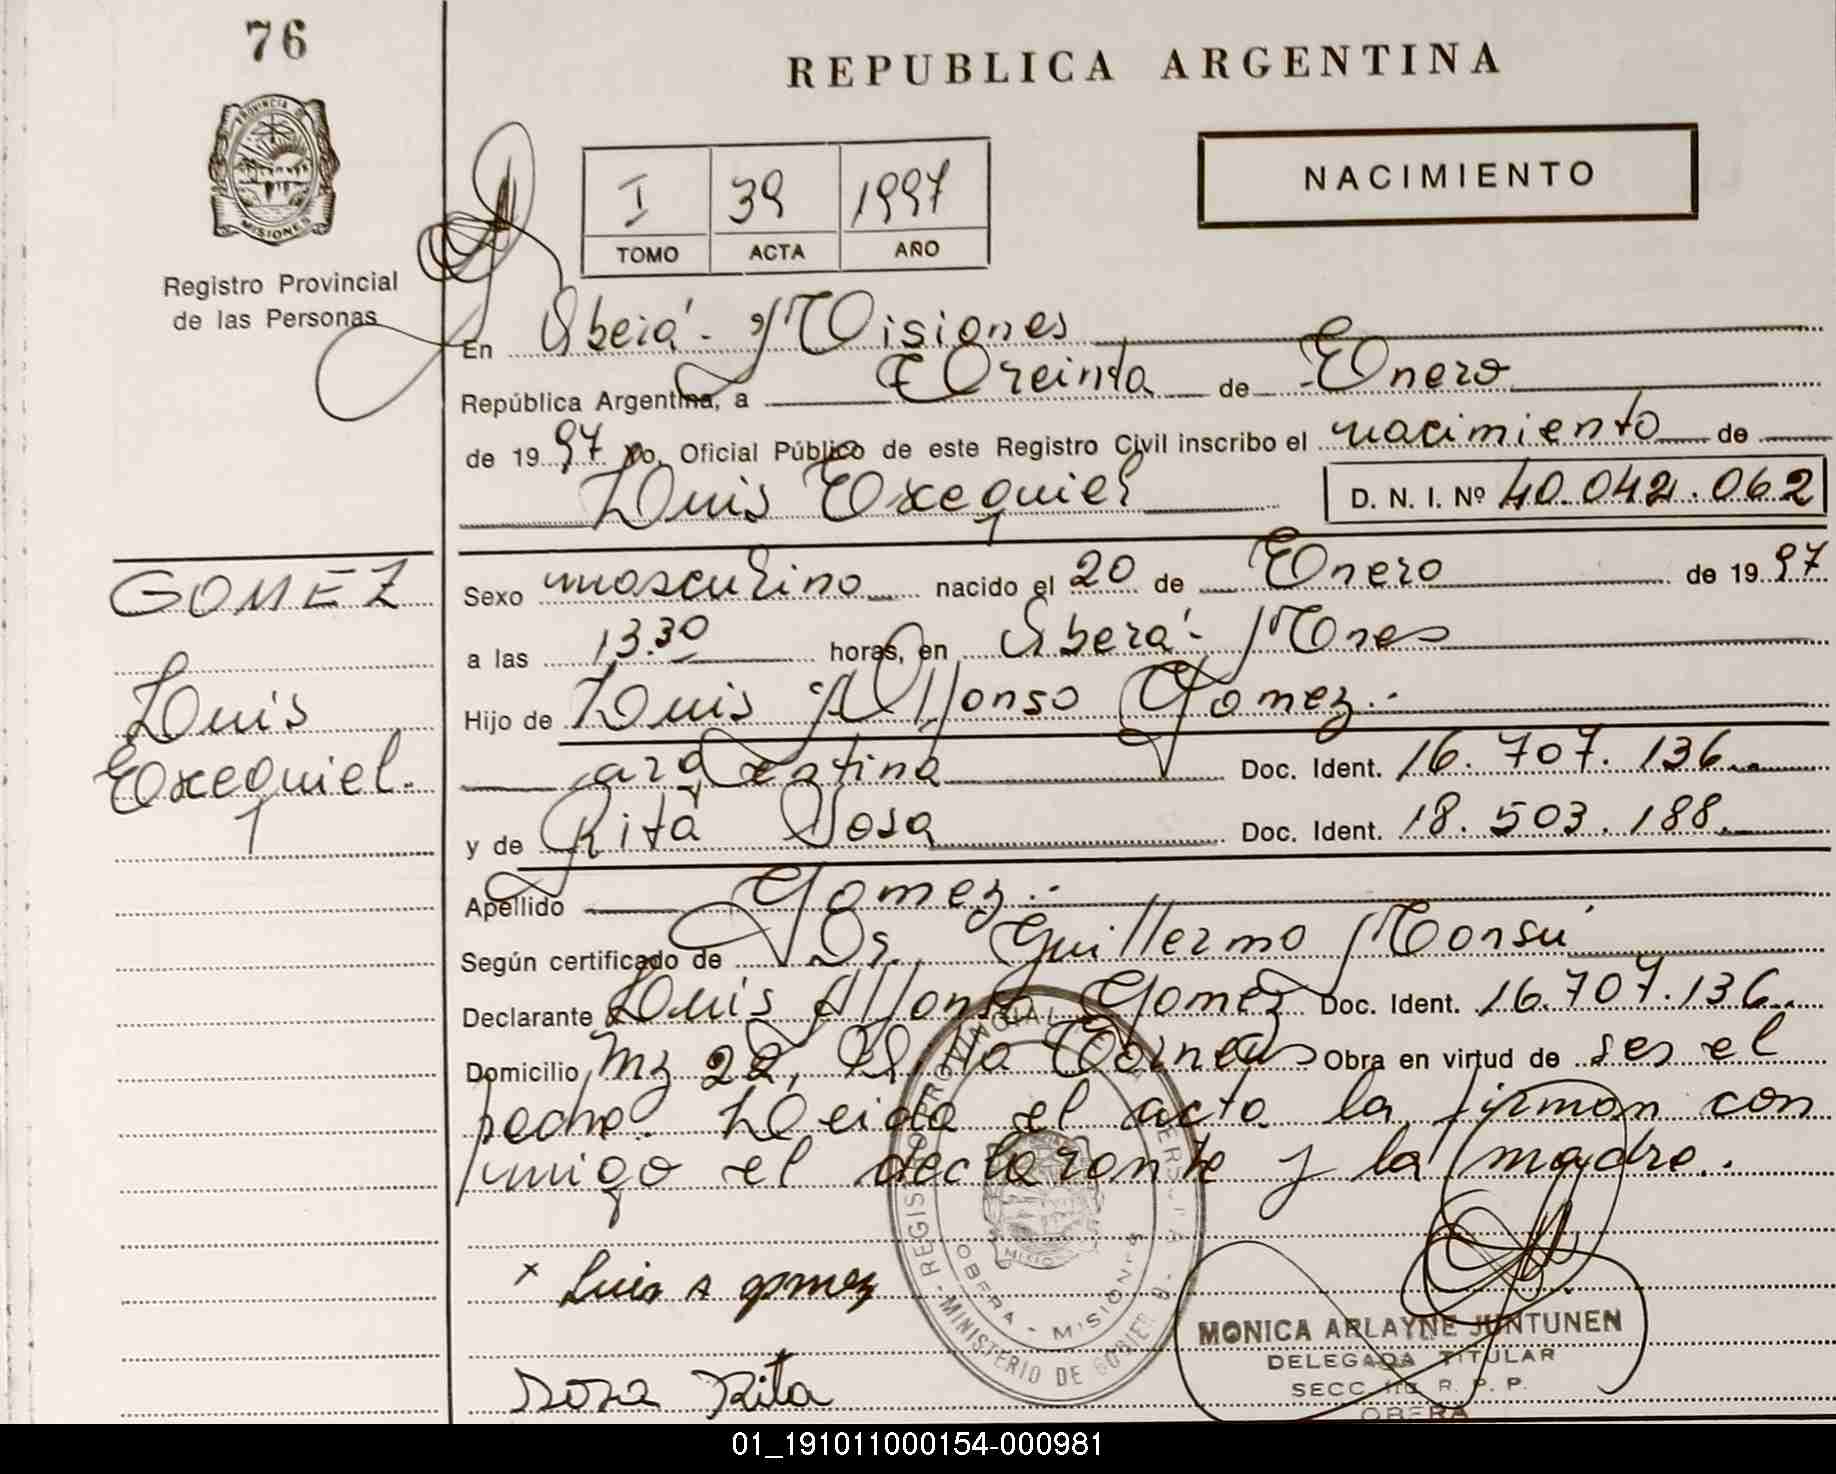 76
REPUBLICA ARGENTINA
PROVINCIA DE
MISIONES
Registro Provincial
de las Personas
I 39 1997
TOMO ACTA AÑO
NACIMIENTO
En Oberá - Misiones
República Argentina, a Treinta de Enero
de 1997 yo, Oficial Público de este Registro Civil inscribo el nacimiento de
Luis Exequiel D. N. I. Nº 40.042.062
GOMEZ
Luis
Exequiel.
Sexo masculino nacido el 20 de Enero de 1997
a las 13.30 horas, en Oberá - Mnes
Hijo de Luis Alfonso Gomez.-
argentina Doc. Ident. 16.707.136.
y de Rita Sosa Doc. Ident. 18.503.188.
Apellido Gomez.-
Según certificado de Dr. Guillermo Monsú
Declarante Luis Alfonso Gomez Doc. Ident. 16.707.136.
Domicilio Mz 22, Obra en virtud de ser el
padre. Leida el acta la firman con
migo el declarante y la madre.
x Luis A gomez
Sosa Rita
REGISTRO PROVINCIAL DE LAS PERSONAS
OBERA - MISIONES
MINISTERIO DE GOBIERNO
MONICA ARLAYNE JUNTUNEN
DELEGADA TITULAR
SECC. R. P. P.
OBERA
01_191011000154-000981